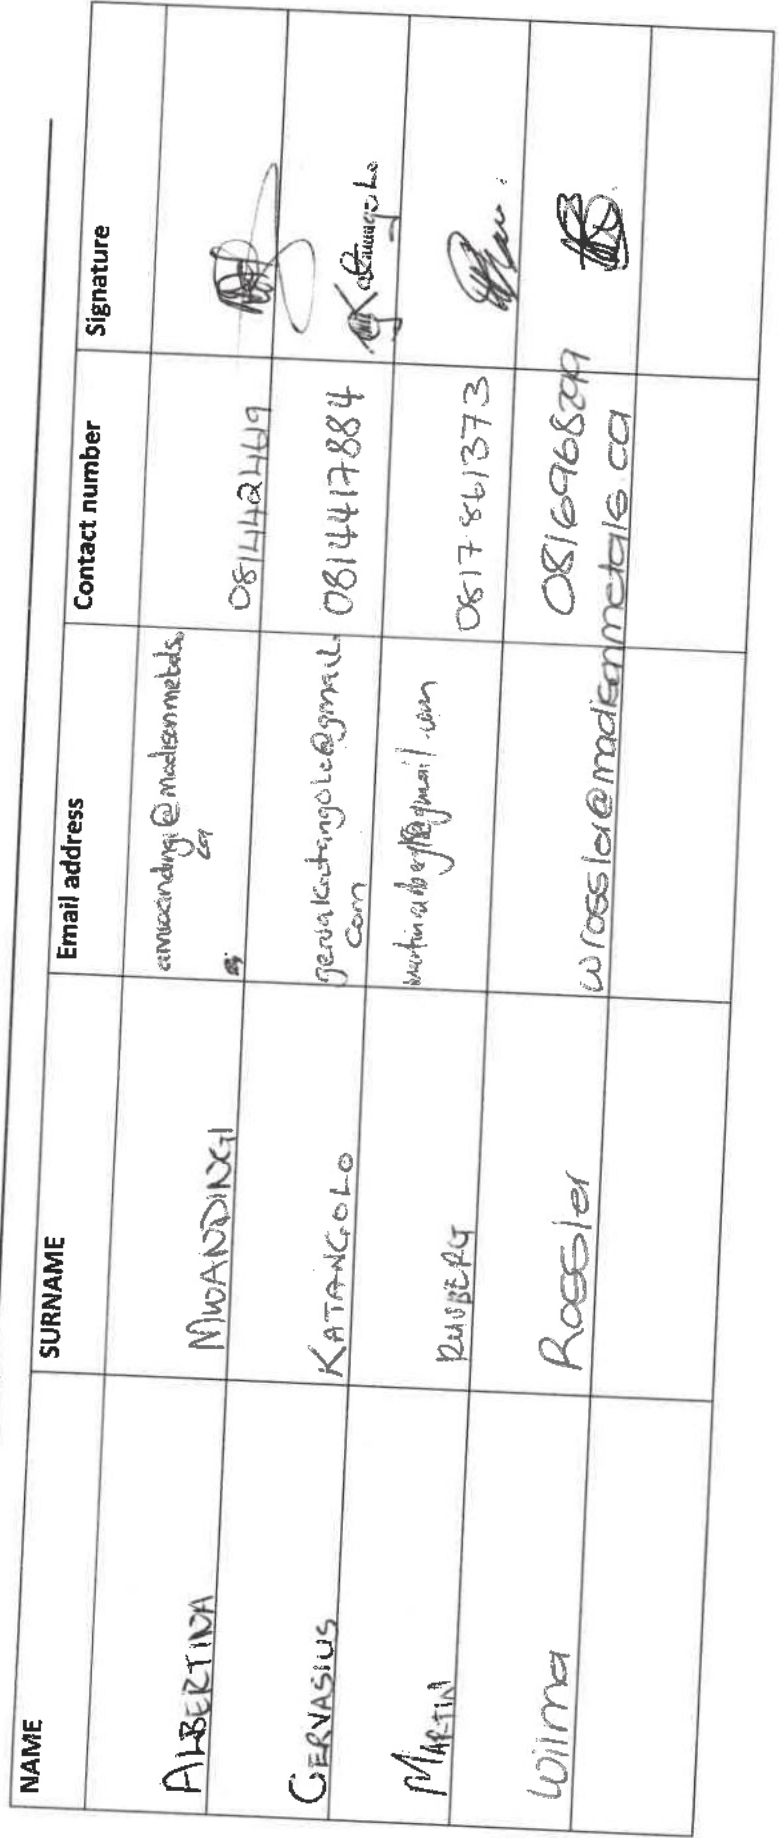 NAME SURNAME Email address Contact number Signature
ALBERTINA MWANDINGI amwandingi@madisonmetals.
ca 0814142469
GERVASIUS KATANGOLO gervakatangolo@gmail. 0814417884
com
MARTIN 0817861373
Wilma Rossler wrossler@madisonmetals.ca 0816968299